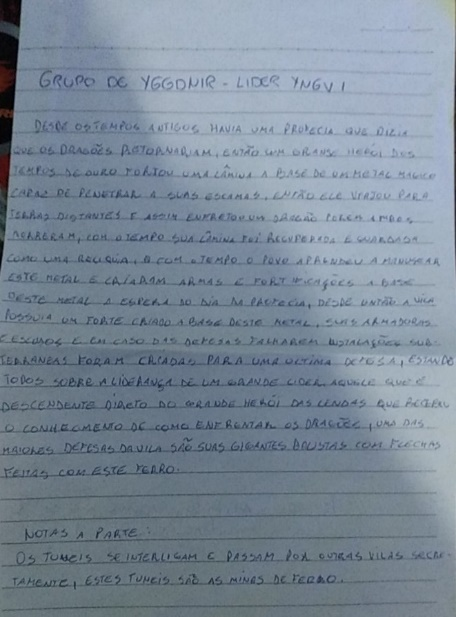 GRUPO DE YGGDNIR - LIDER YNGVI
DESDE OS TEMPOS ANTIGOS HAVIA UMA PROFECIA QUE DIZIA
QUE OS DRAGÕES RETORNARIAM, ENTÃO UM GRANDE HERÓI DOS
TEMPOS DE OURO FORJOU UMA LÂMINA A BASE DE UM METAL MAGICO
CAPAZ DE PENETRAR A SUAS ESCAMAS, ENTÃO ELE VIAJOU PARA
TERRAS DISTANTES E ASSIM ENFRETOU UM DRAGÃO POREM AMBOS
MORRERAM, COM O TEMPO SUA LÂMINA FOI RECUPERADA E GUARDADA
COMO UMA RELIQUIA, E COM O TEMPO O POVO APRENDEU A MANUSEAR
ESTE METAL E CRIARAM ARMAS E FORTIFICAÇÕES A BASE
DESTE METAL A ESPERA DO DIA DA PROFECIA, DESDE ENTÃO A VILA
POSSUIA UM FORTE CRIADO A BASE DESTE METAL, SUAS ARMADURAS
E ESCUDOS E EM CASO DAS DEFESAS FALHAREM INSTALAÇÕES SUB-
TERRANEAS FORAM CRIADAS PARA UMA ULTIMA DEFESA, ESTANDO
TODOS SOBRE A LIDERANÇA DE UM GRANDE LIDER AQUELE QUE É
DESCENDENTE DIRETO DO GRANDE HERÓI DAS LENDAS QUE RECEBEU
O CONHECIMENTO DE COMO ENFRONTAR OS DRAGÕES, UMA DAS
MAIORES DEFESAS DA VILA SÃO SUAS GIGANTES BALISTAS COM FLECHAS
FEITAS COM ESTE FERRO.
NOTAS A PARTE:
OS TUNEIS SE INTERLIGAM E PASSAM POR OUTRAS VILAS SECRE-
TAMENTE, ESTES TUNEIS SÃO AS MINAS DE FERRO.